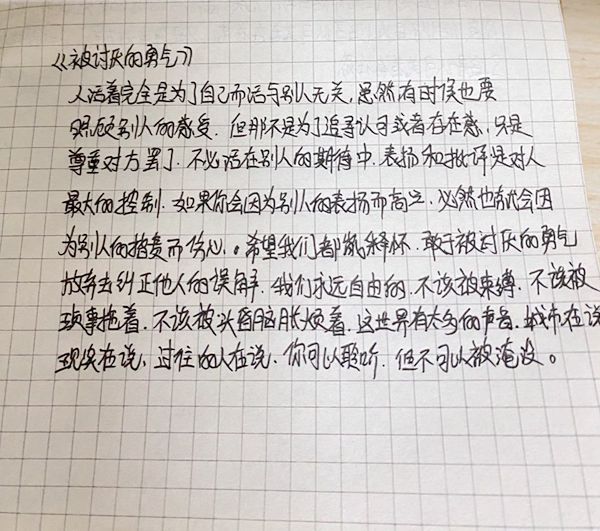 《被讨厌的勇气》
人活着完全是为了自己而活与别人无关,虽然有时候也要
照顾别人的感受.但那不是为了追寻认可或者存在感.只是
尊重对方罢了.不必活在别人的期待中.表扬和批评是对人
最大的控制.如果你会因为别人的表扬而高兴.必然也就会因
为别人的指责而伤心。希望我们都能释怀.敢于被讨厌的勇气
放弃去纠正他人的误解.我们永远自由的.不该被束缚.不该被
琐事拖着.不该被头昏脑胀烦着.这世界有太多的声音.城市在说
现实在说、过往的人在说.你可以聆听.但不可以被淹没。